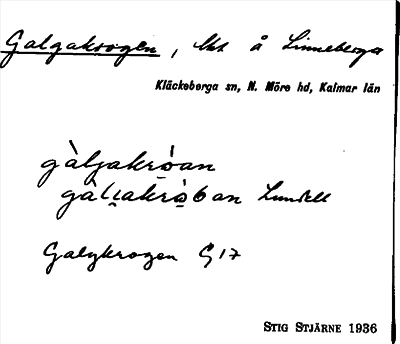 Galgakrogen, Ukt å Linneberga
Kläckeberga sn, N. Möre hd, Kalmar län
gàljakròan
gàljakròban Lundell
Galgkrogen G 17
STIG STJÄRNE 1936